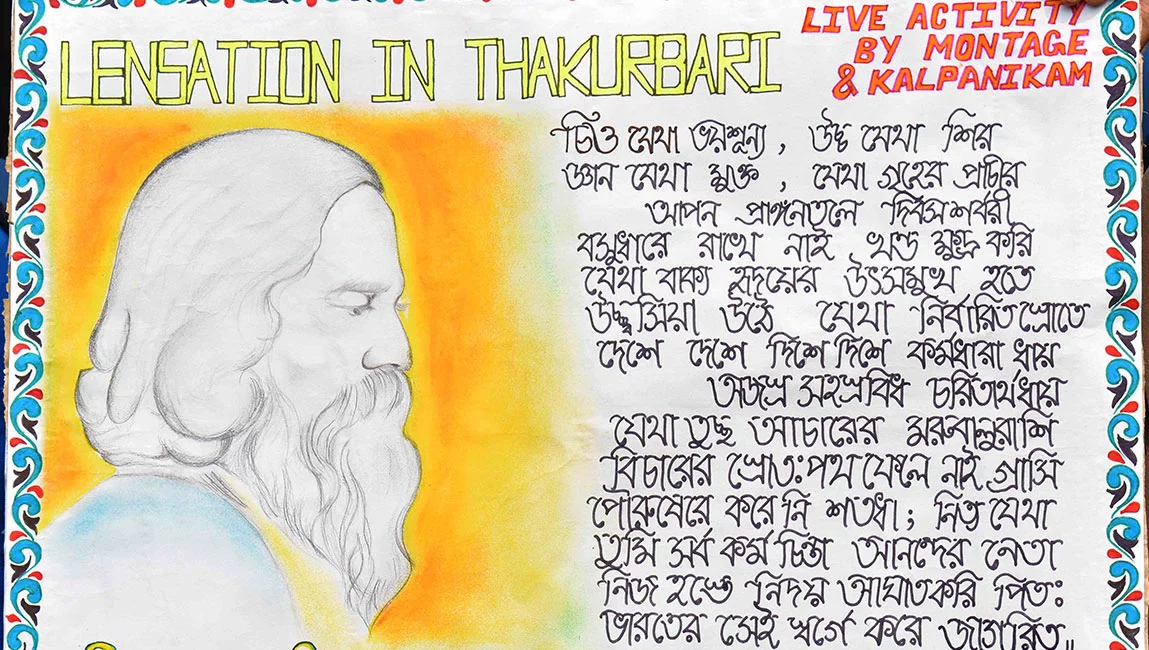 LENSATION IN THAKURBARI
LIVE ACTIVITY
BY MONTAGE
& KALPANIKAM
চিত্ত যেথা ভয়শূন্য , উচ্চ যেথা শির
জ্ঞান যেথা মুক্ত , যেথা গৃহের প্রাচীর
আপন প্রাঙ্গনতলে দিবসশর্বরী
বসুধারে রাখে নাই খন্ড ক্ষুদ্র করি
যেথা বাক্য হৃদয়ের উৎসমুখ হতে
উচ্ছ্বসিয়া উঠে যেথা নির্বারিত স্রোতে
দেশে দেশে দিশে দিশে কর্মধারা ধায়
অজস্র সহস্রবিধ চরিতার্থধায়
যেথা তুচ্ছ আচারের মরুবালুরাশি
বিচারের স্রোতঃপথ ফেলে নাই গ্রাসি
পৌরুষেরে করে নি শতধা ; নিত্য যেথা
তুমি সর্ব কর্ম চিন্তা আনন্দের নেতা
নিজ হস্তে নির্দয় আঘাত করি পিতঃ
ভারতের সেই স্বর্গে করে জাগরিত॥